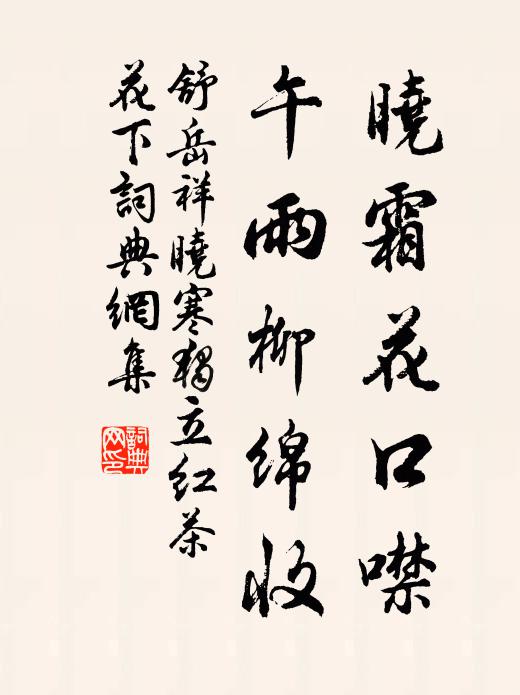 曉霜花口噤
午雨柳綿收
舒岳祥曉寒獨立紅茶
花下詞典網集
詞典網印